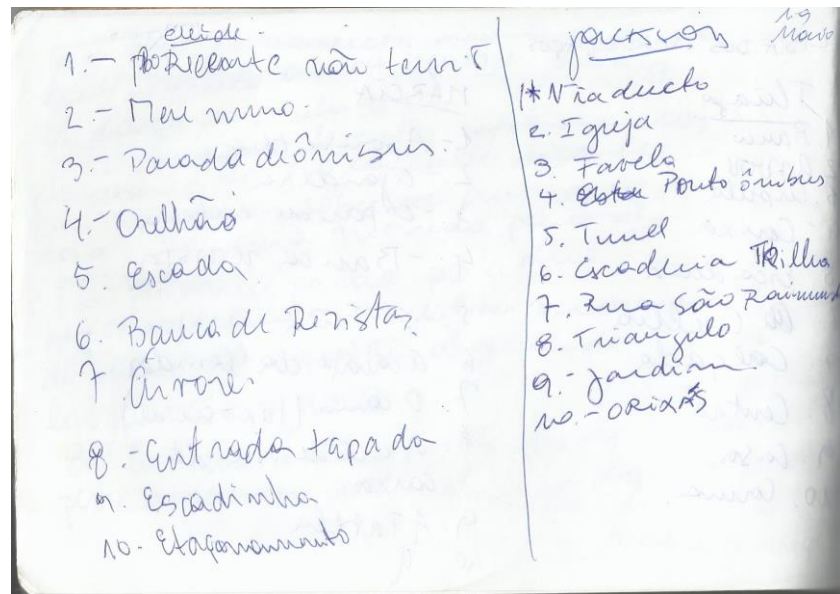 1.- não tem
2.- Meu
3.- Parada de ônibus.
4.- Orelhão
5. Escada
6. Banca de Revistas.
7. Árvore.
8.- Entrada tapada
9. Escadinha
10.- Etacionamento
Jackson
1* Viaducto
2. Igreja
3. Favela
4. Ponto ônibus
5. Tunel
6. Escaderia Trilha
7. Rua São Raimund
8. Triangulo
9.- Jardim.
10.- ORIXÁS